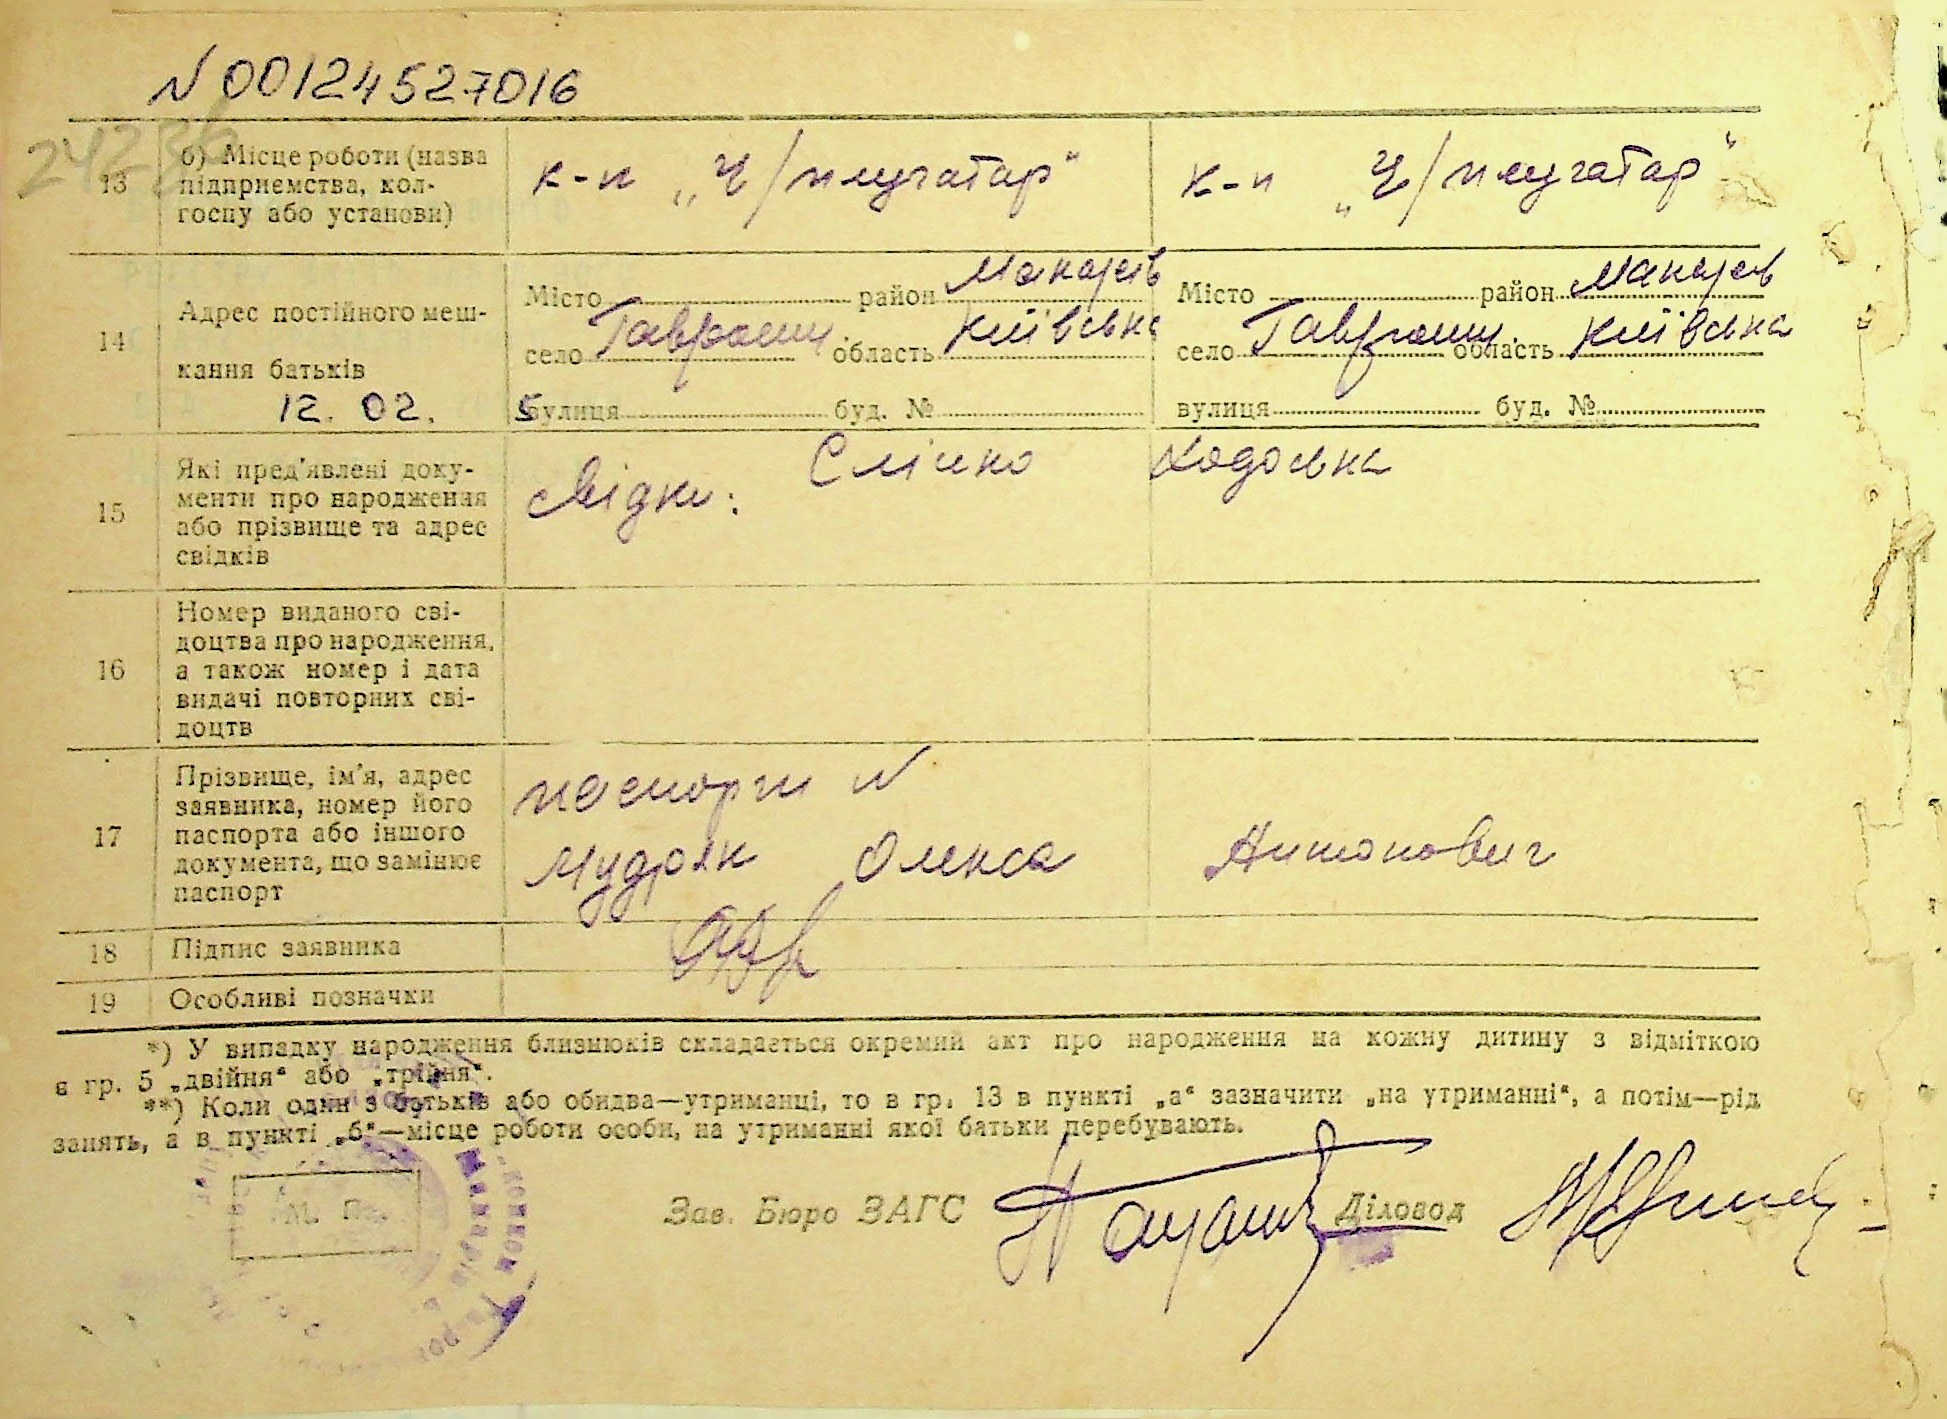 N 00124527016
24236
13 б) Місце роботи (назва підприємства, колгоспу або установи)
к-п „Ч/плугатар“ к-п „Ч/плугатар“
14 Адрес постійного мешкання батьків
12. 02. 5
Місто район Макарів
село Гаврони. область Київська
вулиця буд. №
Місто район Макарів
село Гаврони. область Київська
вулиця буд. №
15 Які пред'явлені документи про народження або прізвище та адрес свідків
свідки:
16 Номер виданого свідоцтва про народження, а також номер і дата видачі повторних свідоцтв
17 Прізвище, ім'я, адрес заявника, номер його паспорта або іншого документа, що замінює паспорт
паспорт N
Мудрак Олекса Антонович
18 Підпис заявника
19 Особливі позначки
*) У випадку народження близнюків складається окремий акт про народження на кожну дитину з відміткою
в гр. 5 „двійня“ або „трійня“.
**) Коли один з батьків або обидва—утриманці, то в гр. 13 в пункті „а“ зазначити „на утриманні“, а потім—рід
занять, а в пункті „б“—місце роботи особи, на утриманні якої батьки перебувають.
М. П.
Зав. Бюро ЗАГС Діловод